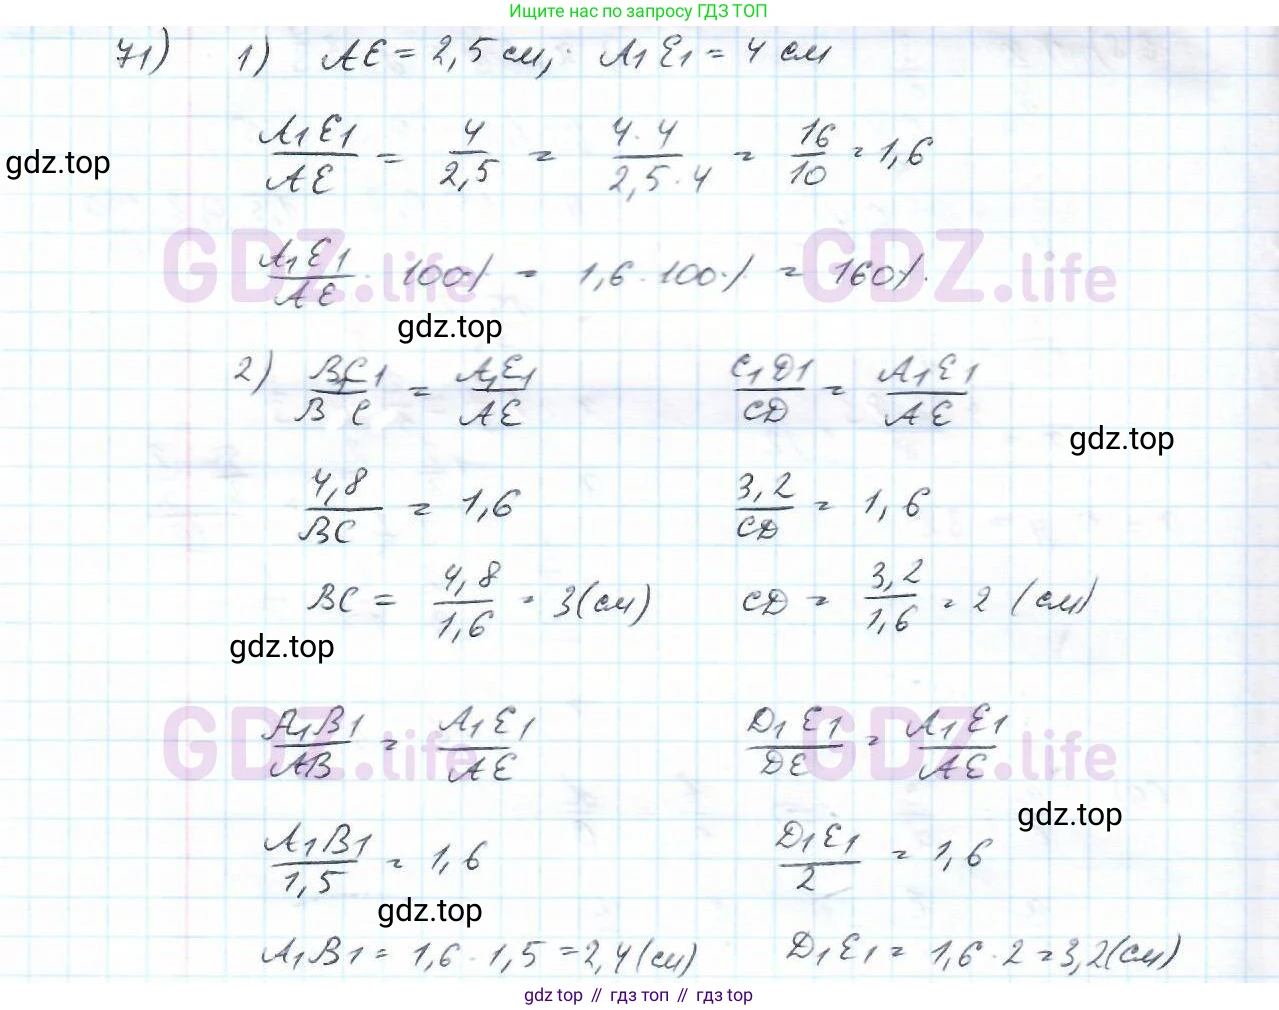 Ищите нас по запросу ГДЗ ТОП
71) 1) AE = 2,5 см; A₁E₁ = 4 см
A₁E₁/AE = 4/2,5 = 4·4/2,5·4 = 16/10 = 1,6
gdz.top
A₁E₁/AE · 100% = 1,6 · 100% = 160%.
GDZ.life GDZ.life
gdz.top
2) B₁C₁/BC = A₁E₁/AE C₁D₁/CD = A₁E₁/AE
gdz.top
4,8/BC = 1,6 3,2/CD = 1,6
BC = 4,8/1,6 = 3(см) CD = 3,2/1,6 = 2 (см)
gdz.top
A₁B₁/AB = A₁E₁/AE D₁E₁/DE = A₁E₁/AE
GDZ.life GDZ.life
gdz.top
A₁B₁/1,5 = 1,6 D₁E₁/2 = 1,6
gdz.top
A₁B₁ = 1,6 · 1,5 = 2,4(см) D₁E₁ = 1,6 · 2 = 3,2(см)
gdz top // гдз топ // гдз top